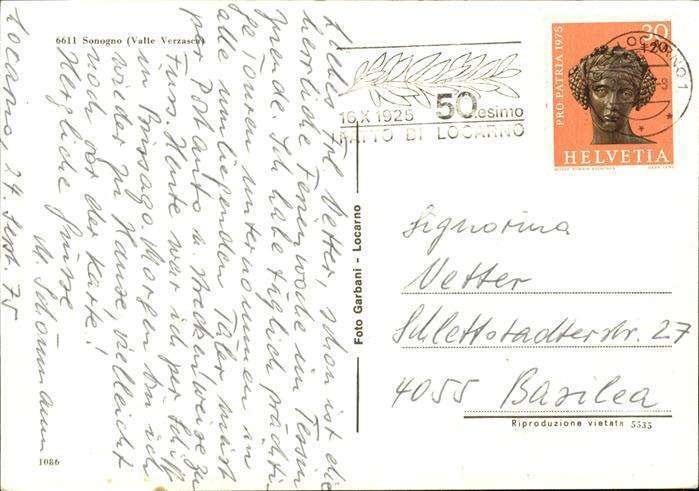 6611 Sonogno (Valle Verzasca)
Locarno, 24. Sept. 75
Liebes Frl. Vetter, schon ist die
herrliche Ferienwoche im Tessin
zu Ende. Ich habe täglich prächti-
ge Touren unternommen in
alle umliegenden Täler meist
per Postauto u. streckenweise zu
Fuss. Heute war ich per Schiff
in Brissago. Morgen bin ich
wieder zu Hause, vielleicht
noch vor der Karte!
Herzliche Grüsse
M. Schönmann
1086
Foto Garbani - Locarno
16.X.1925 50.esimo
PATTO DI LOCARNO
LOCARNO 1
PRO PATRIA 1975
30
+20
HELVETIA
Signorina
Vetter
Schlettstadterstr. 27
4055 Basilea
Riproduzione vietata 5535